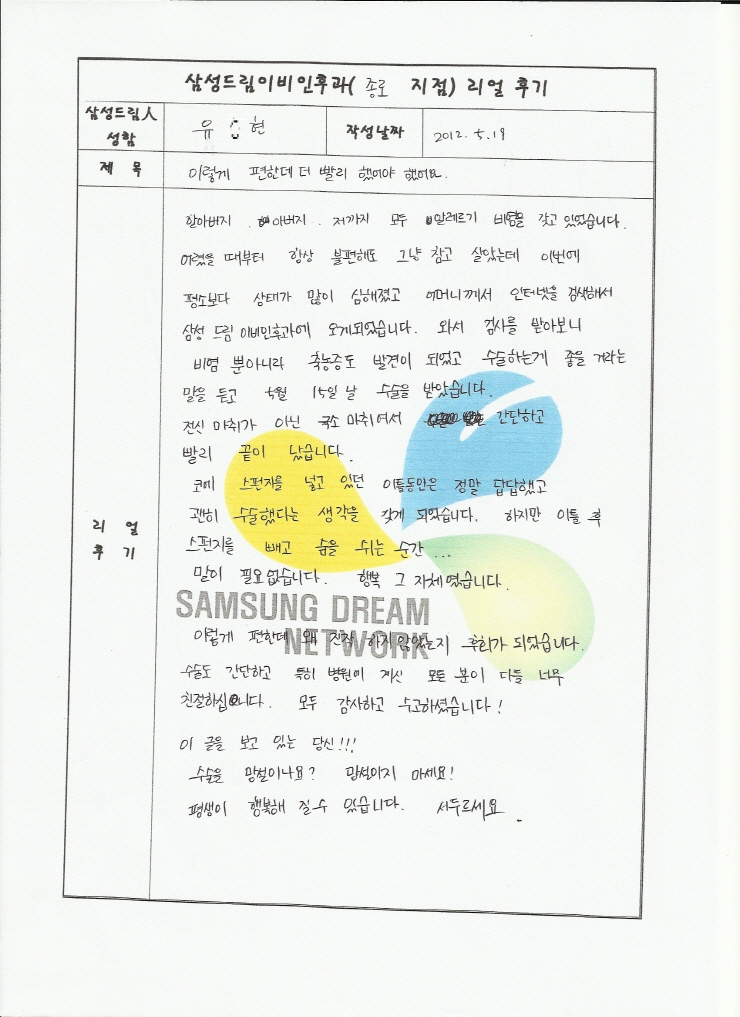 삼성드림이비인후과( 종로 지점) 리얼 후기
삼성드림人 성함
유 현
작성날짜
2012. 5. 19
제 목
이렇게 편한데 더 빨리 했어야 했어요.
리 얼 후 기
할아버지 . 아버지 . 저까지 모두 알레르기 비염을 갖고 있었습니다.
어렸을 때부터 항상 불편해도 그냥 참고 살았는데 이번에
평소보다 상태가 많이 심해졌고 어머니께서 인터넷을 검색해서
삼성 드림 이비인후과에 오게되었습니다. 와서 검사를 받아보니
비염 뿐아니라 축농증도 발견이 되었고 수술하는게 좋을 거라는
말을 듣고 5월 15일 날 수술을 받았습니다.
전신 마취가 아닌 국소 마취여서 간단하고
빨리 끝이 났습니다.
코에 스펀지를 넣고 있던 이틀동안은 정말 답답했고
괜히 수술했다는 생각을 갖게 되었습니다. 하지만 이틀 후
스펀지를 빼고 숨을 쉬는 순간...
말이 필요없습니다. 행복 그 자체였습니다.
SAMSUNG DREAM
NETWORK
이렇게 편한데 왜 진작 하지않았는지 후회가 되었습니다.
수술도 간단하고 특히 병원에 계신 모든 분이 다들 너무
친절하십니다. 모두 감사하고 수고하셨습니다!
이 글을 보고 있는 당신!!!
수술을 망설이나요? 망설이지 마세요!
평생이 행복해 질수 있습니다. 서두르세요.